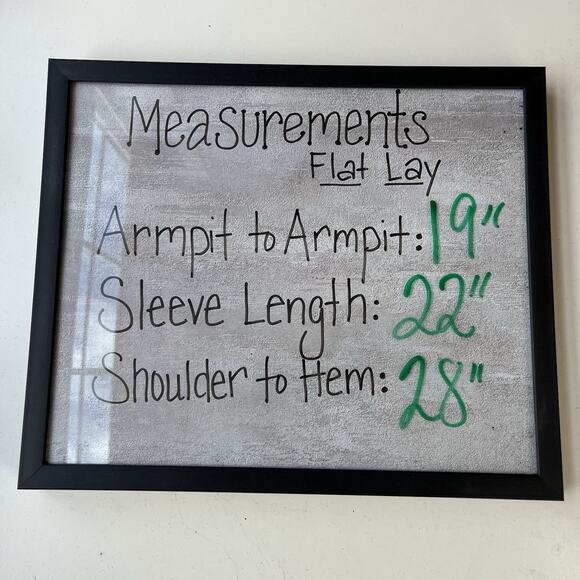 Measurements
Flat Lay
Armpit to Armpit: 19"
Sleeve Length: 22"
Shoulder to Hem: 28"